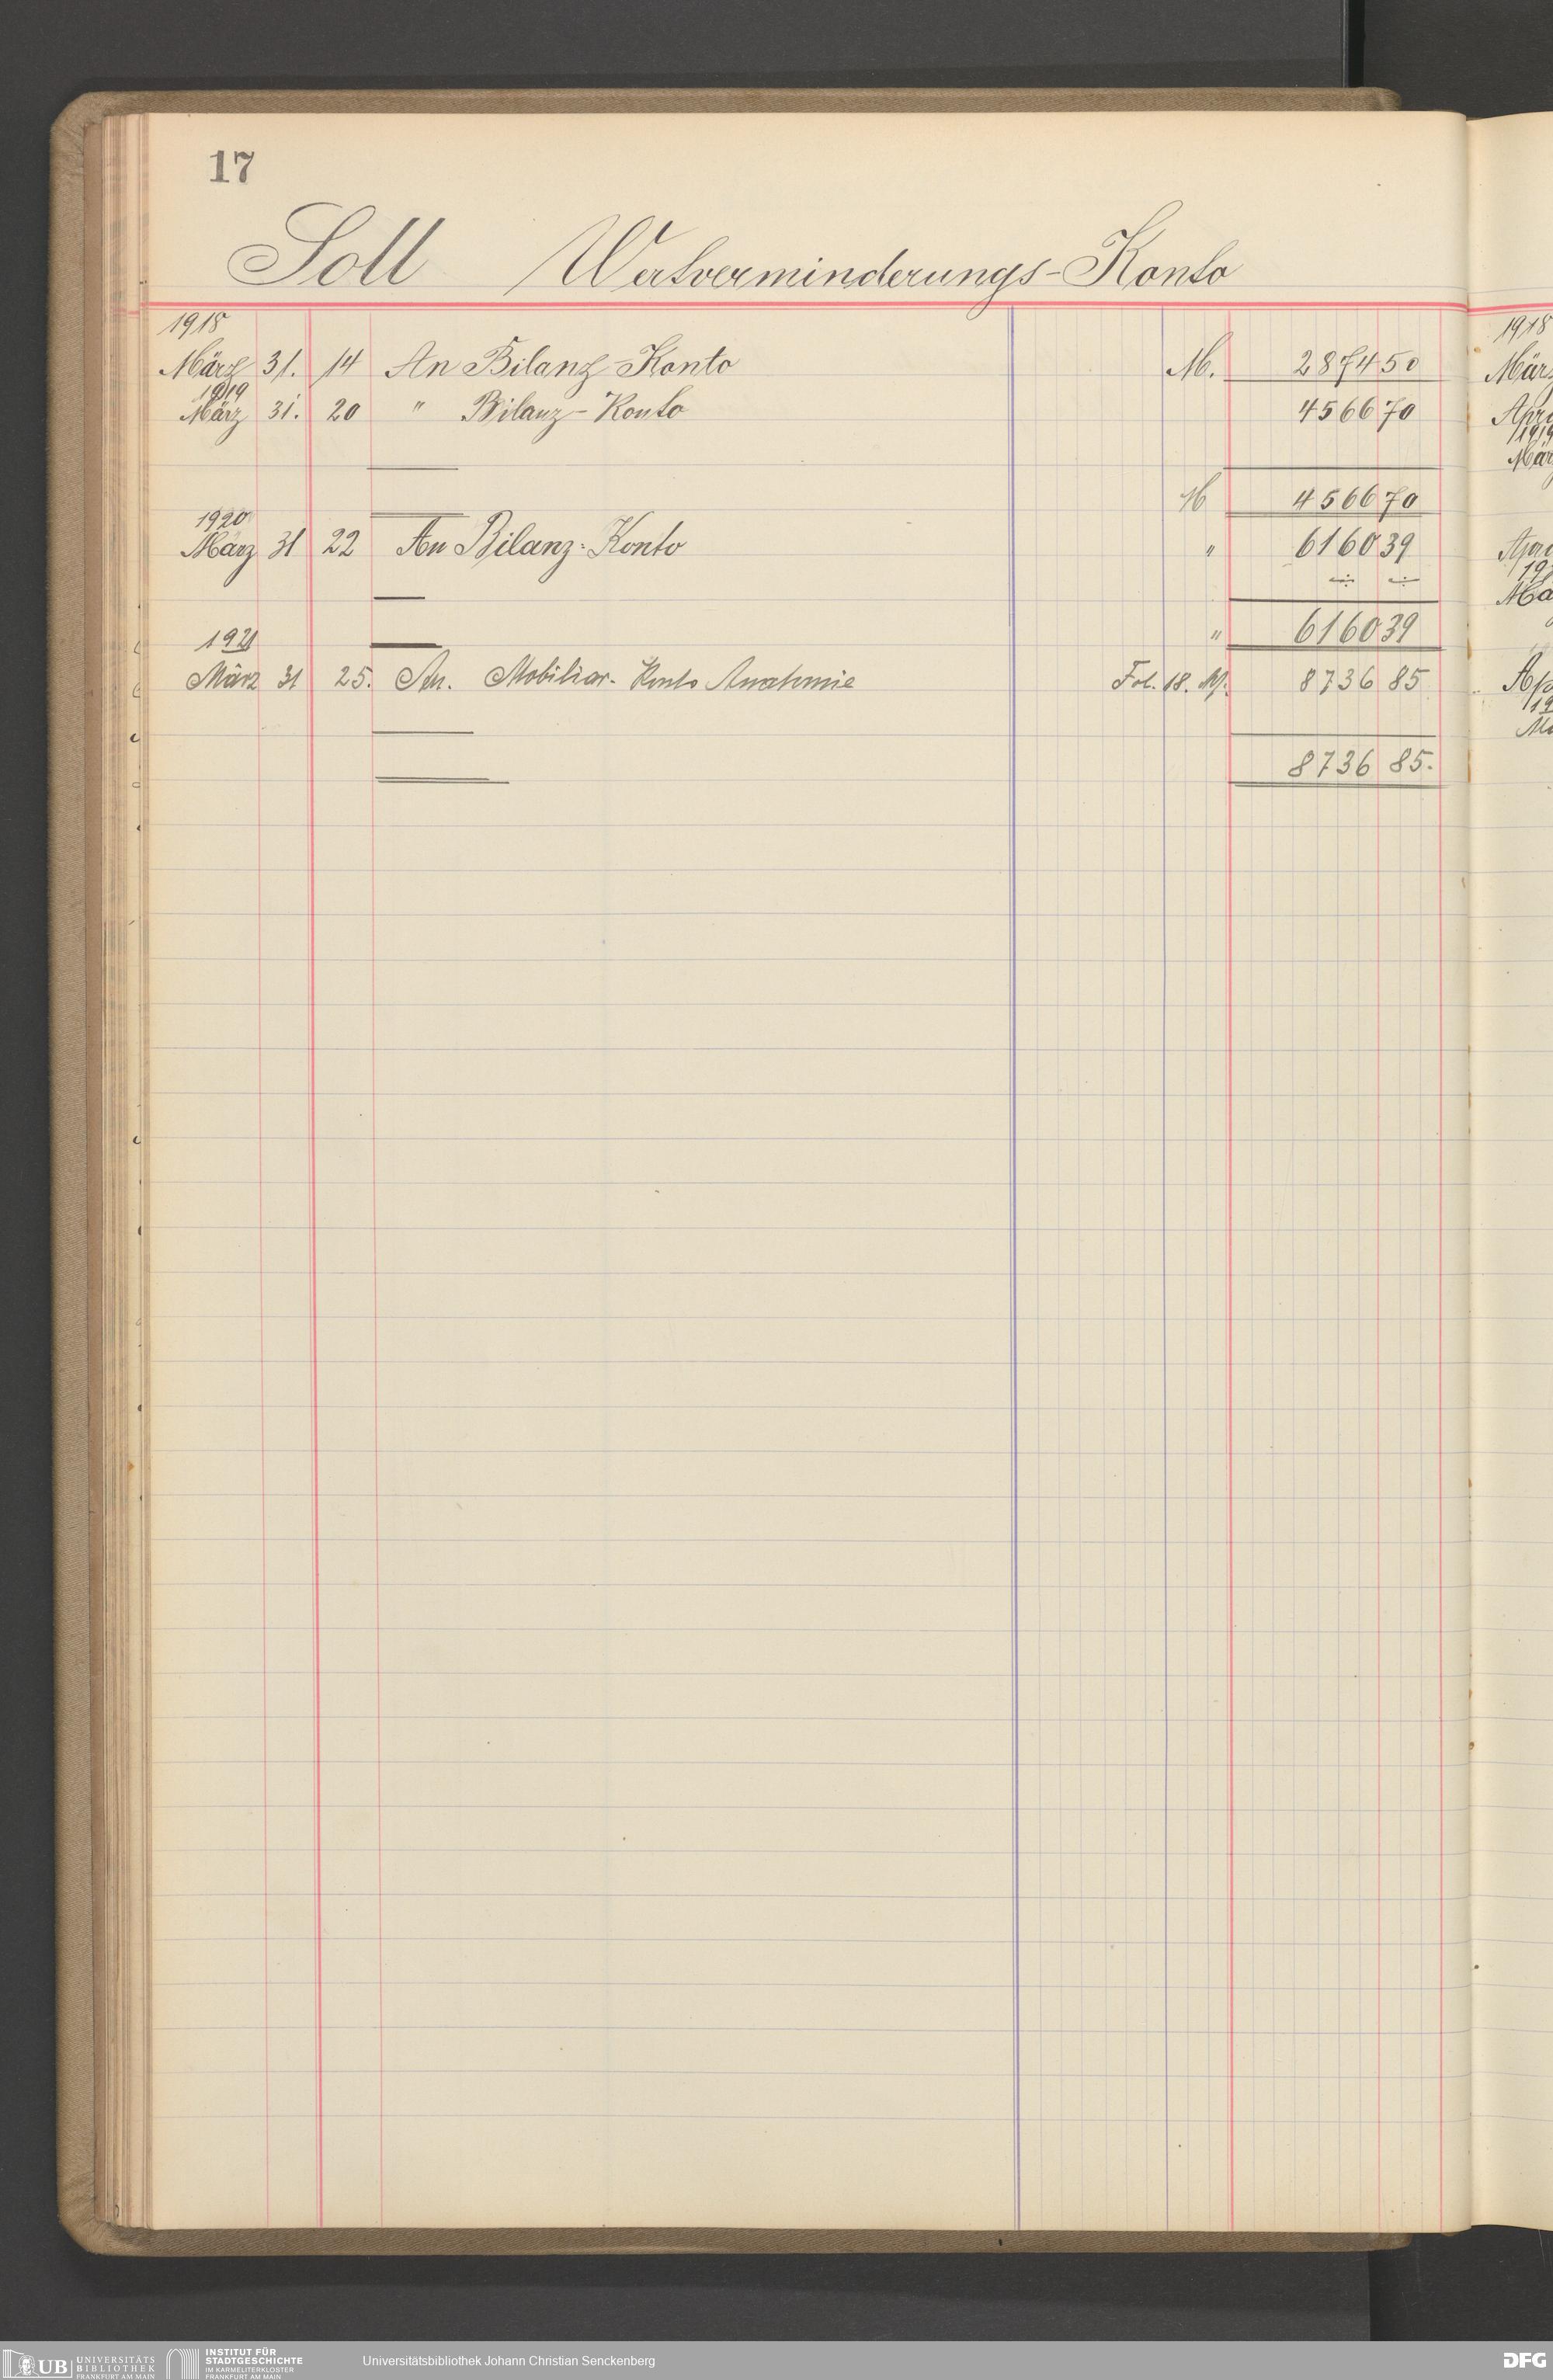 17
Soll Wertverminderungs-Konto
1918
März 31. 14 An Bilanz-Konto M. 2874 50
1919
März 31. 20 " Bilanz-Konto 4566 70
M 4566 70
1920
März 31 22 An Bilanz-Konto " 6160 39
" 6160 39
1921
März 31 25. An. Mobiliar-Konto Anatomie Fol. 18. M. 8736 85
8736 85.
1918
März
1919
UB UNIVERSITÄTS BIBLIOTHEK FRANKFURT AM MAIN
INSTITUT FÜR STADTGESCHICHTE IM KARMELITERKLOSTER FRANKFURT AM MAIN
Universitätsbibliothek Johann Christian Senckenberg
DFG